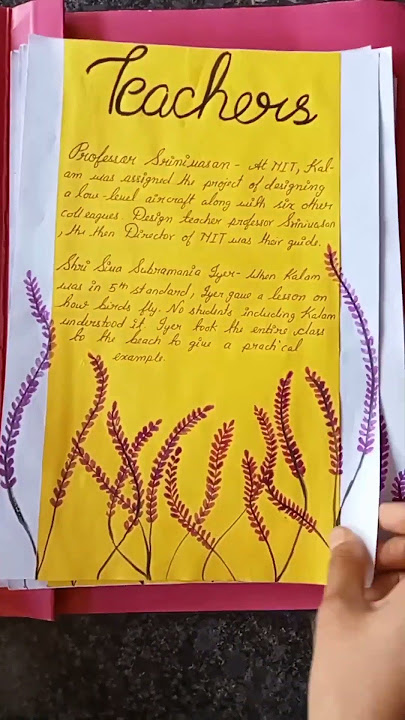 Teachers
Professor Srinivasan - At NIT, Kal-
am was assigned the project of designing
a low-level aircraft along with six other
colleagues. Design teacher professor Srinivasan
, the then Director of NIT was their guide.
Shri Siva Subramania Iyer- When Kalam
was in 5th standard, Iyer gave a lesson on
how birds fly. No students including Kalam
understood it. Iyer took the entire class
to the beach to give a practical
example.